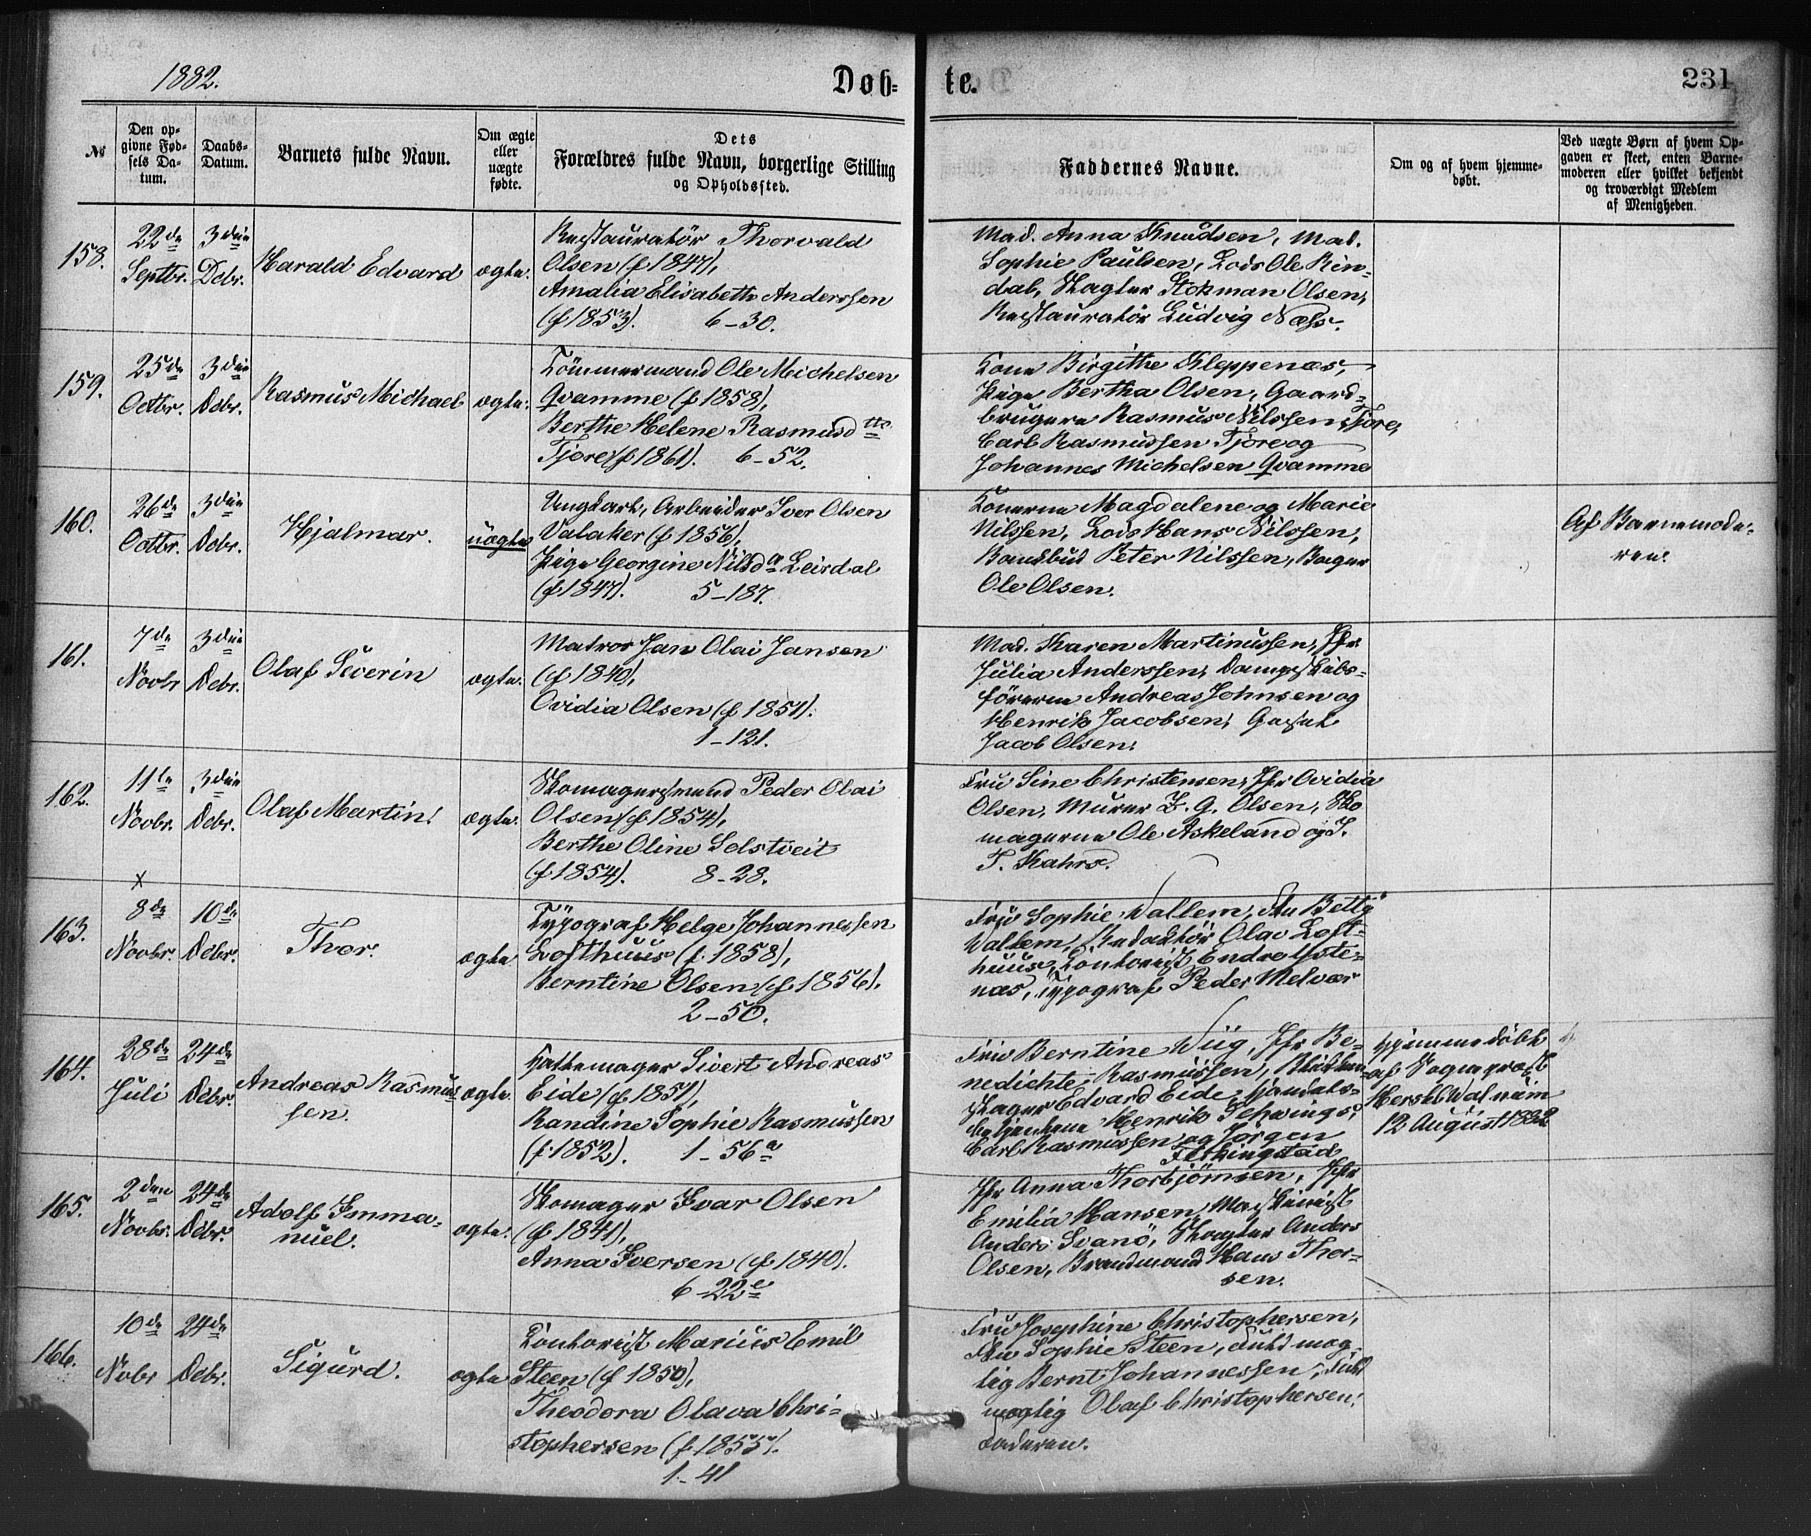 1882.
Døb-
te.
231
№
Den op-
givne Fød-
sels Da-
tum.
Daabs-
Datum.
Barnets fulde Navn.
Om ægte
eller
uægte
fødte.
Dets
Forældres fulde Navn, borgerlige Stilling
og Opholdssted.
Faddernes Navne.
Om og af hvem hjemme-
døbt.
Ved uægte Børn af hvem Op-
gaven er skeet, enten Barne-
moderen eller hvilket bekjendt
og troværdigt Medlem
af Menigheden.
158.
22de
Septbr.
3die
Dcbr.
Harald Edvard
ægte.
Restauratør Thorvald
Olsen (f 1847),
Amalia Elisabeth Anderssen
(f 1853). 6-30.
Mad. Anna Knudsen, Mad.
Sophie Paulsen, Lods Ole Rin-
dal, Slagter Stokman Olsen,
Restauratør Ludvig Næss.
159.
25de
Octbr.
3die
Dcbr.
Rasmus Michael
ægte.
Tömmermand Ole Michelsen
Qvamme (f 1858),
Berthe Helene Rasmusdtte
Tjore (f 1861). 6-52.
Kone Birgithe Kleppenæs,
Pige Bertha Olsen, Gaard-
brugere Rasmus Nilssen Tjore,
Carl Rasmussen Tjore og
Johannes Michelsen Qvamme
160.
26de
Octbr.
3die
Dcbr.
Hjalmar.
uægte
Ungkarl, Arbeider Iver Olsen
Valaker (f 1856),
Pige Georgine Nilsda Leirdal
(f 1847). 5-187.
Konerne Magdalene og Marie
Nilssen, Lods Hans Nilssen,
Peter Nilssen, Bager
Ole Olsen.
Af Barnemode-
ren.
161.
7de
Novbr
3die
Dcbr.
Olaf Severin
ægte.
Matros Jan Olai Jansen
(f 1840),
Ovidia Olsen (f 1851).
1-121.
Mad. Karen Martinussen, Jfr
Julia Anderssen, Dampskibs-
förerne Andreas Johnsen og
Henrik Jacobsen,
Jacob Olsen.
162.
11te
Novbr.
3die
Dcbr.
Olaf Martin.
ægte.
Skomagersvend Peder Olai
Olsen (f 1854),
Berthe Oline Solstveit
(f 1854). 8-28.
Fru Sine Christensen, Jfr Ovidia
Olsen, Murer L. G. Olsen, Sko
magerne Ole Askeland og J.
T. Kahrs.
x
163.
8de
Novbr.
10de
Dcbr.
Thor.
ægte
Typograf Helge Johannessen
Lofthuus (f. 1858),
Berntine Olsen (f 1856).
2-50.
Fru Sophie Wallem, Betty
Wallem, Redaktør Olav Loft-
huus, Kontorist Endre Ystе-
næs, Typograf Peder Melvær
164.
28de
Juli
24de
Dcbr.
Andreas Rasmus
sen.
ægte.
Hattemager Sivert Andreas
Eide (f 1851),
Randine Sophie Rasmussen
(f. 1852). 1-56a
Fru Berntine Wiig, Jfr Be-
nedichte Rasmussen,
Edvard Eide, Handels-
betjentene Henrik
Carl Rasmussen og Jørgen
Hjemmedøbt
af Sogneprest
Walnum
12 August 1882
165.
2den
Novbr.
24de
Dcbr.
Adolf Imma-
nuel.
ægte.
Skomager Ivar Olsen
(f 1841),
Anna Iversen (f 1840).
6-22e
Jfr Anna Thorbjörnsen, Jfr
Emilia Hansen, Maskinist
Anders Svanö, Slagter Anders
Olsen, Brandmand Hans Thor-
sen.
166.
10de
Nobr
24de
Dcbr.
Sigurd.
ægte
Kontorist Marius Emil
Steen (f 1850),
Theodora Olava Chri-
stophersen (f 1855).
1-41
Fru Josephine Christophersen,
Fru Sophie Steen, Fuldmæg-
tig Bernt Johannessen, Fuld
mægtig Olaf Christophersen,
Faderen.